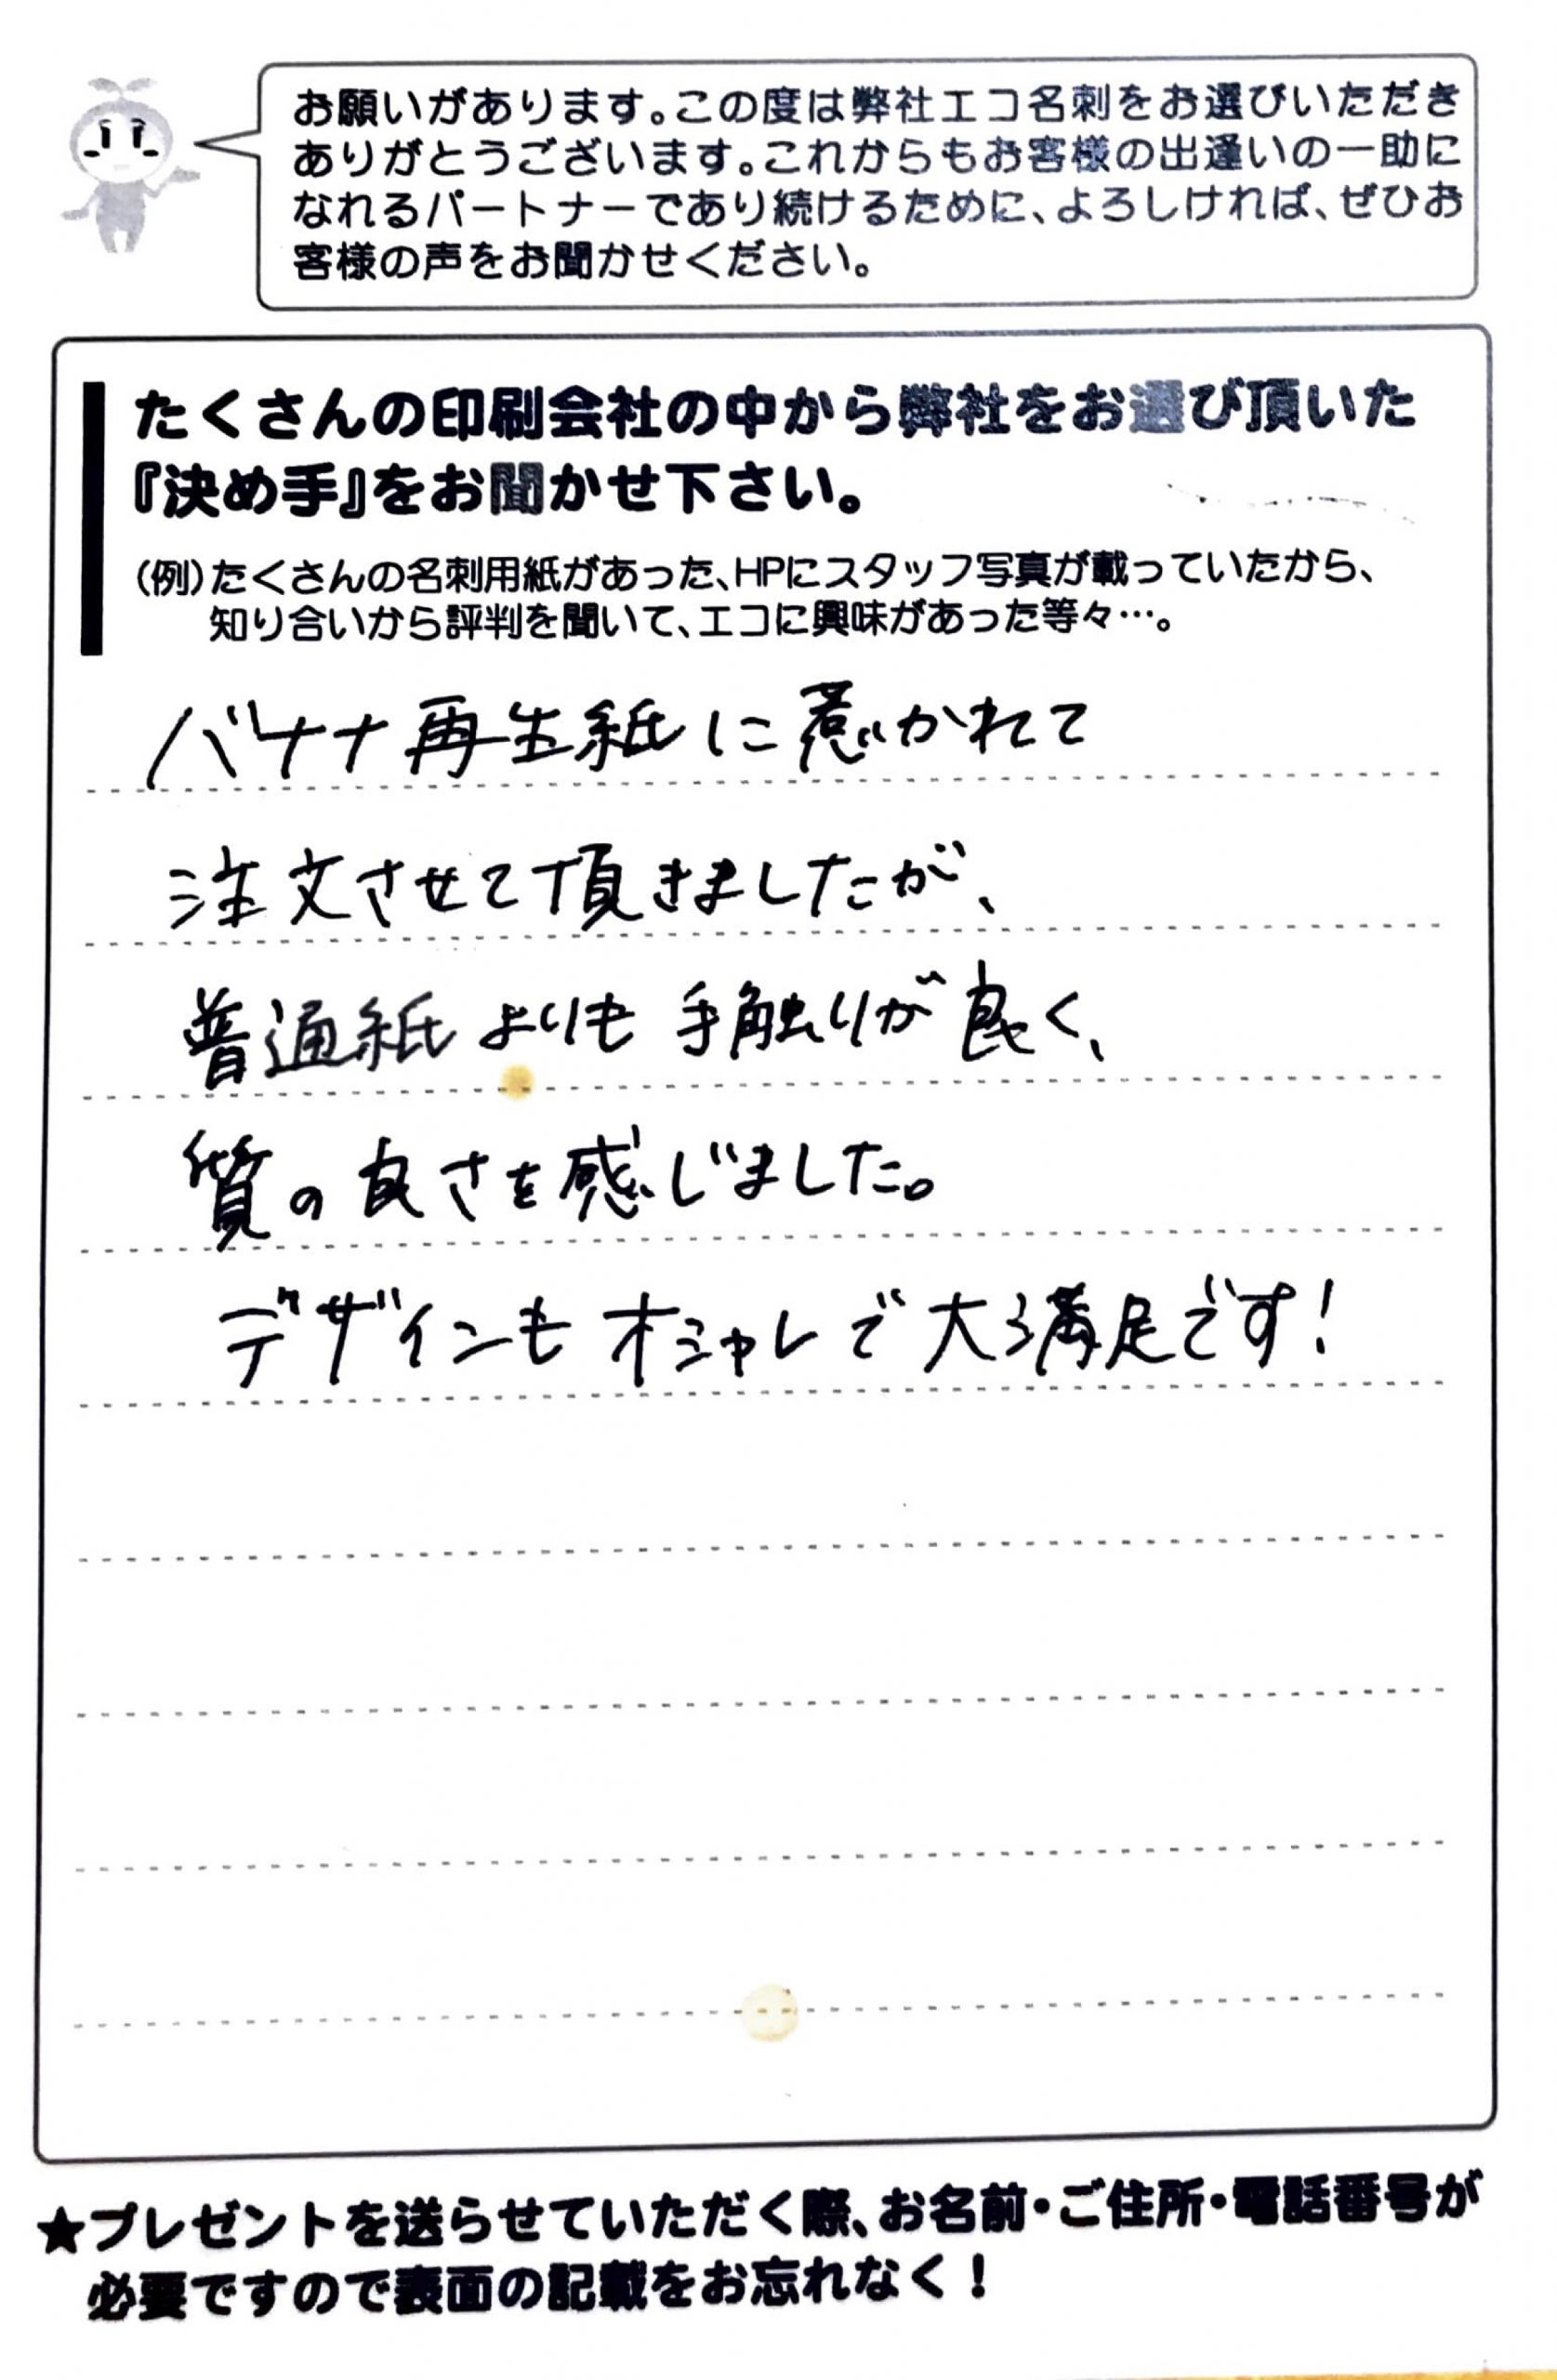 お願いがあります。この度は弊社エコ名刺をお選びいただき
ありがとうございます。これからもお客様の出逢いの一助に
なれるパートナーであり続けるために、よろしければ、ぜひお
客様の声をお聞かせください。
たくさんの印刷会社の中から弊社をお選び頂いた
『決め手』をお聞かせ下さい。
(例)たくさんの名刺用紙があった、HPにスタッフ写真が載っていたから、
知り合いから評判を聞いて、エコに興味があった等々…。
バナナ再生紙に惹かれて
注文させて頂きましたが、
普通紙よりも手触りが良く、
質の良さを感じました。
デザインもオシャレで大満足です!
★プレゼントを送らせていただく際、お名前・ご住所・電話番号が
必要ですので表面の記載をお忘れなく!